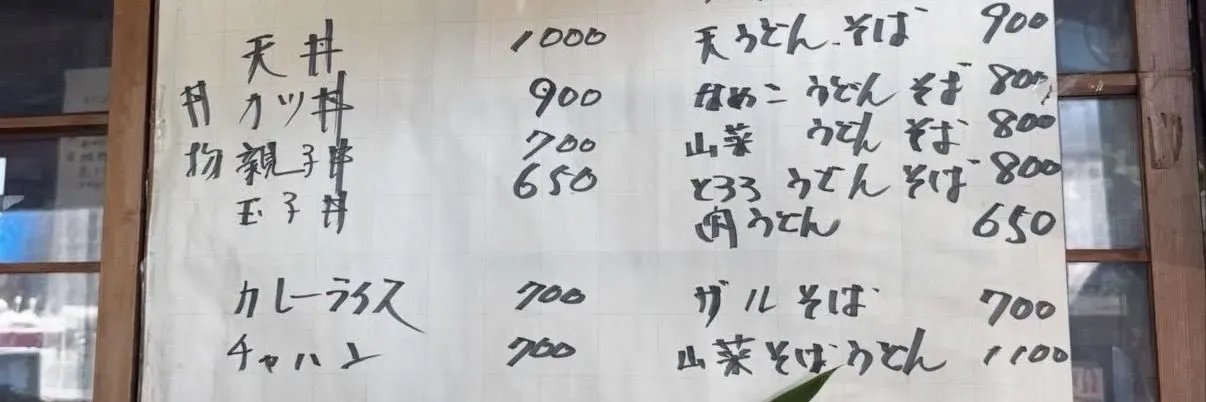 天丼 1000
丼 カツ丼 900
物 親子丼 700
玉子丼 650
カレーライス 700
チャハン 700
天うどん.そば 900
なめこ うどん そば 800
山菜 うどん そば 800
とろろ うどん そば 800
肉うどん 650
ザルそば 700
山菜そばうどん 1100